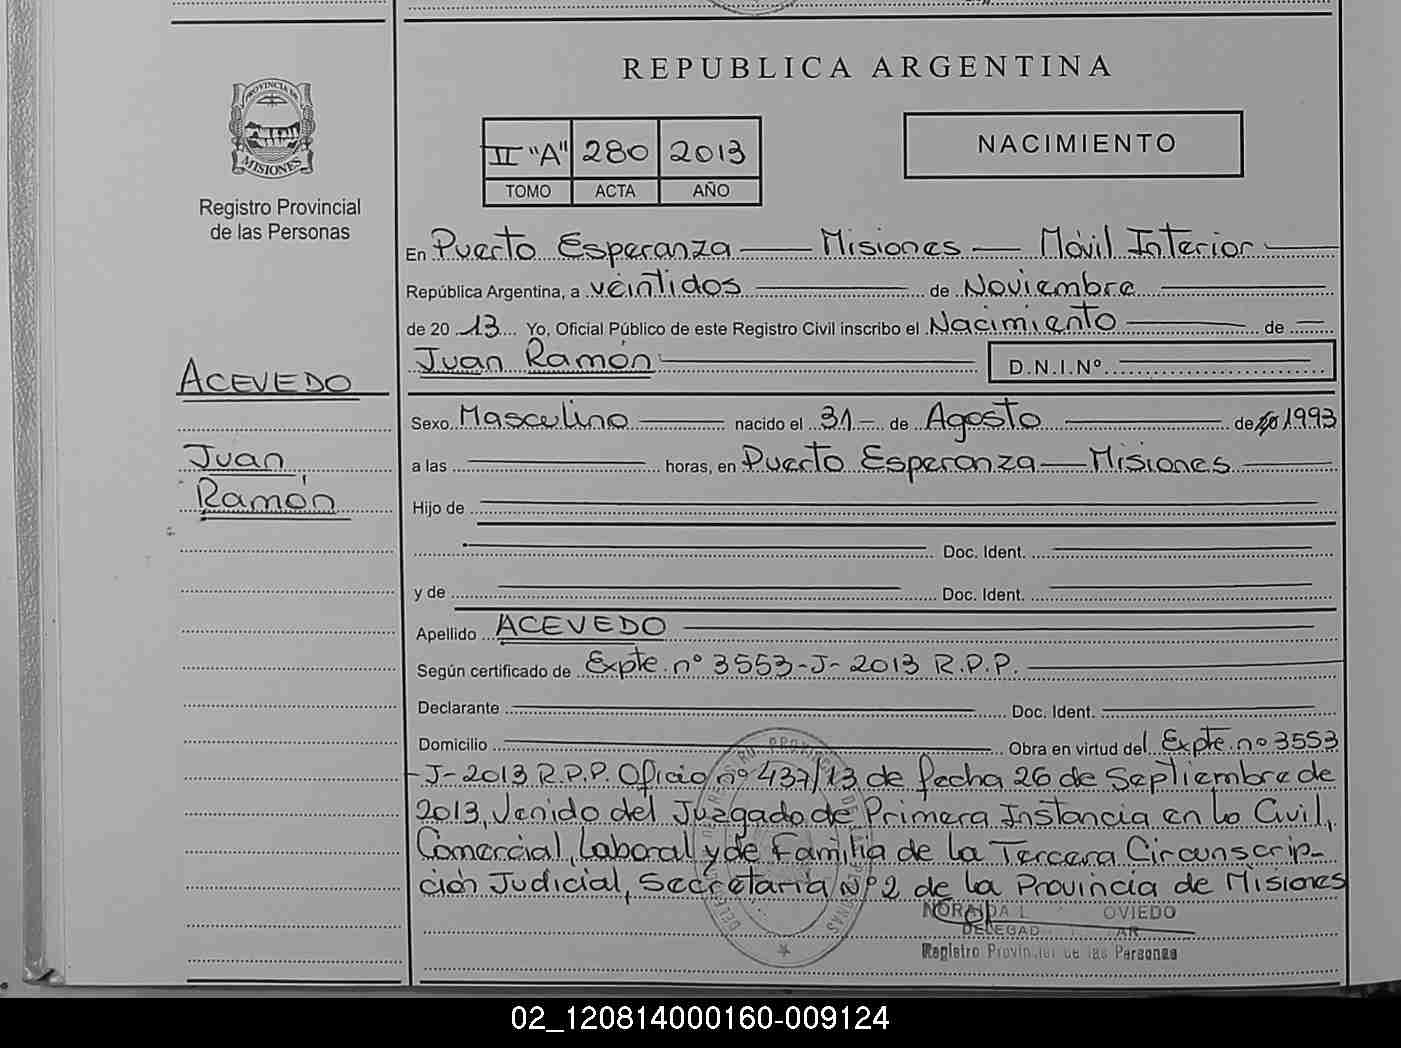 REPUBLICA ARGENTINA
PROVINCIA DE
MISIONES
Registro Provincial
de las Personas
II "A" 280 2013
TOMO ACTA AÑO
NACIMIENTO
En Puerto Esperanza — Misiones — Móvil Interior
República Argentina, a veintidos de Noviembre
de 2013 Yo, Oficial Público de este Registro Civil inscribo el Nacimiento de
Juan Ramón D.N.I.Nº
ACEVEDO
Juan
Ramón
Sexo Masculino nacido el 31 de Agosto de 1993
a las horas, en Puerto Esperanza — Misiones
Hijo de
Doc. Ident.
y de Doc. Ident.
Apellido ACEVEDO
Según certificado de Expte. nº 3553-J-2013 R.P.P.
Declarante Doc. Ident.
Domicilio Obra en virtud del Expte. nº 3553
-J-2013 R.P.P. Oficio nº 437/13 de fecha 26 de Septiembre de
2013, Venido del Juzgado de Primera Instancia en lo Civil,
Comercial, Laboral y de Familia de la Tercera Circunscrip-
ción Judicial, Secretaría Nº 2 de la Provincia de Misiones
OVIEDO
Registro Provincial de las Personas
02_120814000160-009124